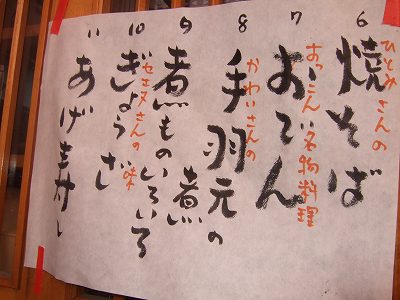 6
ひとみさんの
焼そば
7
おっこん名物料理
おでん
8
かわいさんの
手羽元の煮
9
煮ものいろいろ
10
セエメさんの味
ぎょうざし
11
あげ寿し